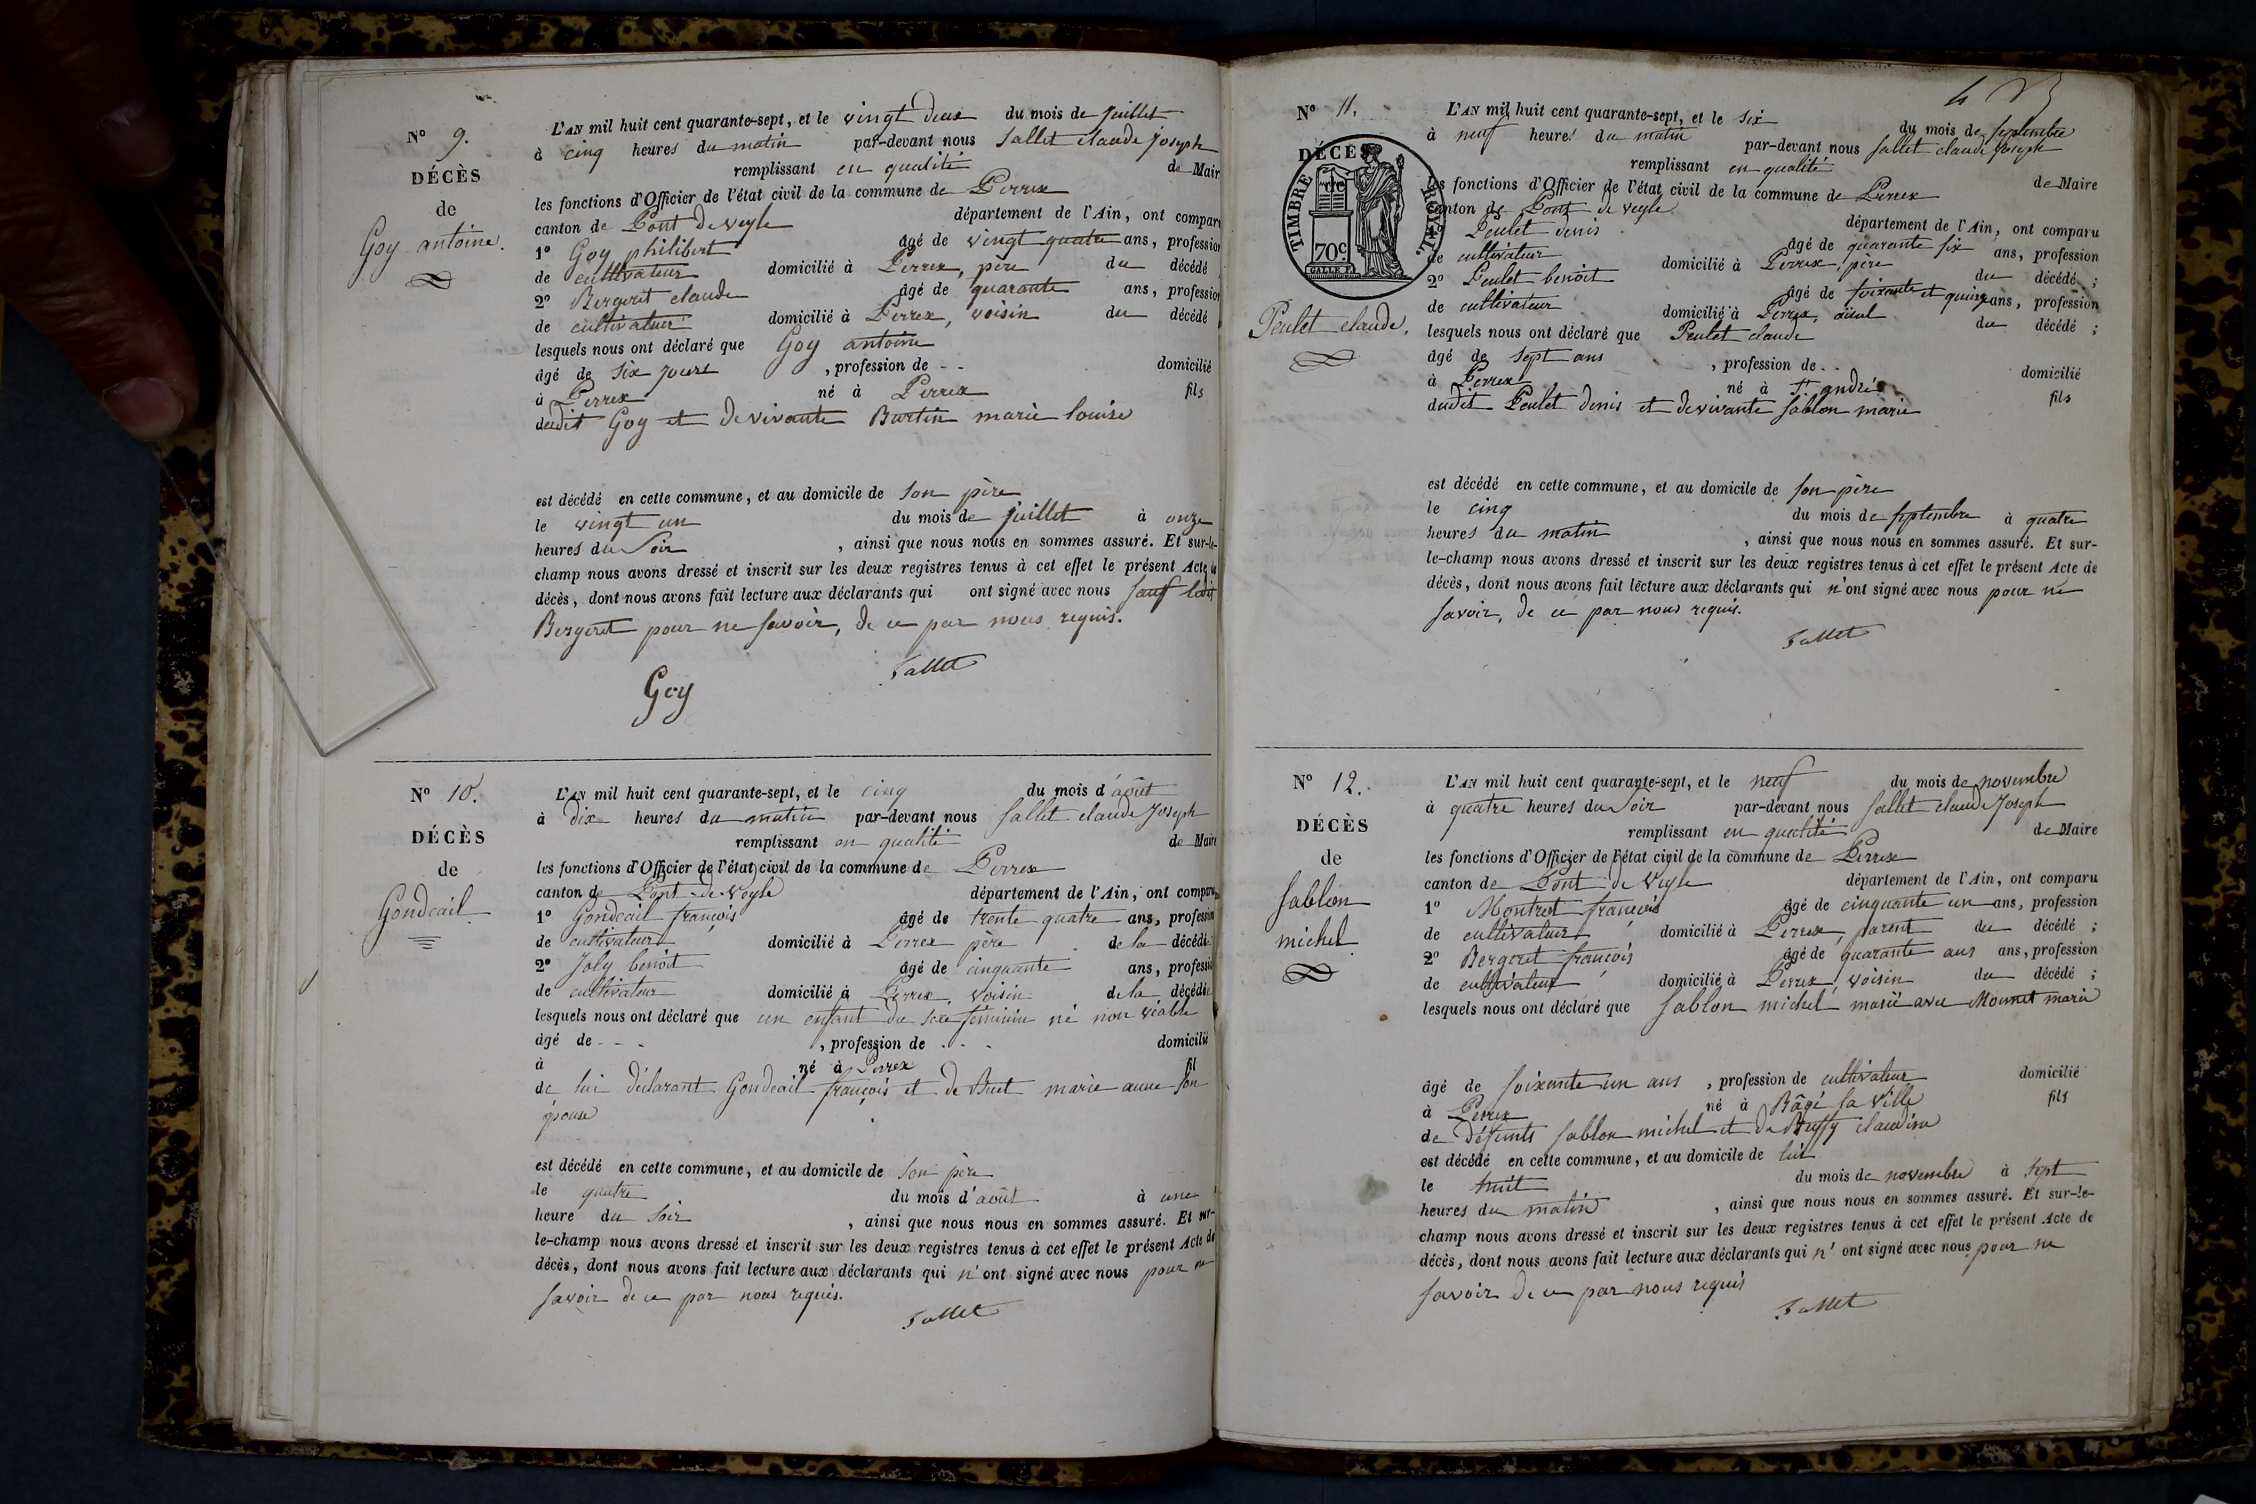 N° 9.
DÉCÈS
de
Goy antoine.
L'AN mil huit cent quarante-sept, et le vingt deux du mois de Juillet
à cinq heures du matin par-devant nous Sallet claude Joseph
remplissant en qualité de Mair
les fonctions d'Officier de l'état civil de la commune de Perrex
canton de Pont de veyle département de l'Ain, ont comparu
1° Goy philibert âgé de vingt quatre ans, profession
de cultivateur domicilié à Perrex, père du décédé
2° Bergeret claude âgé de quarante ans, profession
de cultivateur domicilié à Perrex, voisin du décédé
lesquels nous ont déclaré que Goy antoine
âgé de six jours , profession de - - domicilié
à Perrex né à Perrex fils
dudit Goy et de vivante Burtin marie louise
est décédé en cette commune, et au domicile de son père
le vingt un du mois de juillet à onze
heures du Soir , ainsi que nous nous en sommes assuré. Et sur-le-
champ nous avons dressé et inscrit sur les deux registres tenus à cet effet le présent Acte de
décès, dont nous avons fait lecture aux déclarants qui ont signé avec nous sauf ledit
Bergeret pour ne savoir, de ce par nous requis.
Sallet
Goy
N° 10.
DÉCÈS
de
Gondcail
L'AN mil huit cent quarante-sept, et le cinq du mois d'août
à dix heures du matin par-devant nous Sallet claude Joseph
remplissant en qualité de Maire
les fonctions d'Officier de l'état civil de la commune de Perrex
canton de Pont-de-Veyle département de l'Ain, ont comparu
1° Gondcail françois âgé de trente quatre ans, profession
de cultivateur domicilié à Perrex père de la décédée
2° Joly benoit âgé de cinquante ans, professio
de cultivateur domicilié à Perrex, voisin de la décédée
lesquels nous ont déclaré que un enfant du sexe féminin né non viable
âgé de - - - , profession de . . . domicilié
à né à Perrex fil
de lui déclarant Gondcail françois et de Buet marie anne son
épouse
est décédé en cette commune, et au domicile de son père
le quatre du mois d'août à une
heure du soir , ainsi que nous nous en sommes assuré. Et sur-
le-champ nous avons dressé et inscrit sur les deux registres tenus à cet effet le présent Acte de
décès, dont nous avons fait lecture aux déclarants qui n'ont signé avec nous pour ne
savoir de ce par nous requis.
Sallet
N° 11.
DÉCÈS
de
TIMBRE ROYAL.
70c
Peulet claude.
L'AN mil huit cent quarante-sept, et le six du mois de Septembre
à neuf heures du matin par-devant nous Sallet claude Joseph
remplissant en qualité de Maire
les fonctions d'Officier de l'état civil de la commune de Perrex
canton de Pont de veyle département de l'Ain, ont comparu
Peulet denis âgé de quarante six ans, profession
de cultivateur domicilié à Perrex, père du décédé ;
2° Peulet benoit âgé de soixante et quinze ans, profession
de cultivateur domicilié à Perrex, aïeul du décédé ;
lesquels nous ont déclaré que Peulet claude
âgé de sept ans , profession de . . domicilié
à Perrex né à St andré fils
dudit Peulet denis et de vivante Sablon marie
est décédé en cette commune, et au domicile de son père
le cinq du mois de Septembre à quatre
heures du matin , ainsi que nous nous en sommes assuré. Et sur-
le-champ nous avons dressé et inscrit sur les deux registres tenus à cet effet le présent Acte de
décès, dont nous avons fait lecture aux déclarants qui n'ont signé avec nous pour ne
savoir, de ce par nous requis.
Sallet
N° 12.
DÉCÈS
de
Sablon
michel
L'AN mil huit cent quarante-sept, et le neuf du mois de novembre
à quatre heures du Soir par-devant nous Sallet claude Joseph
remplissant en qualité de Maire
les fonctions d'Officier de l'état civil de la commune de Perrex
canton de Pont de Veyle département de l'Ain, ont comparu
1° Montret françois âgé de cinquante un ans, profession
de cultivateur domicilié à Perrex, parent du décédé ;
2° Bergeret françois âgé de quarante ans ans, profession
de cultivateur domicilié à Perrex, voisin du décédé ;
lesquels nous ont déclaré que Sablon michel marié avec Monnet marie
âgé de soixante un ans , profession de cultivateur domicilié
à Perrex né à Bâgé la Ville fils
de défunts Sablon michel et de Buffy claudine
est décédé en cette commune, et au domicile de lui
le huit du mois de novembre à sept
heures du matin , ainsi que nous nous en sommes assuré. Et sur-le-
champ nous avons dressé et inscrit sur les deux registres tenus à cet effet le présent Acte de
décès, dont nous avons fait lecture aux déclarants qui n'ont signé avec nous pour ne
savoir de ce par nous requis
Sallet